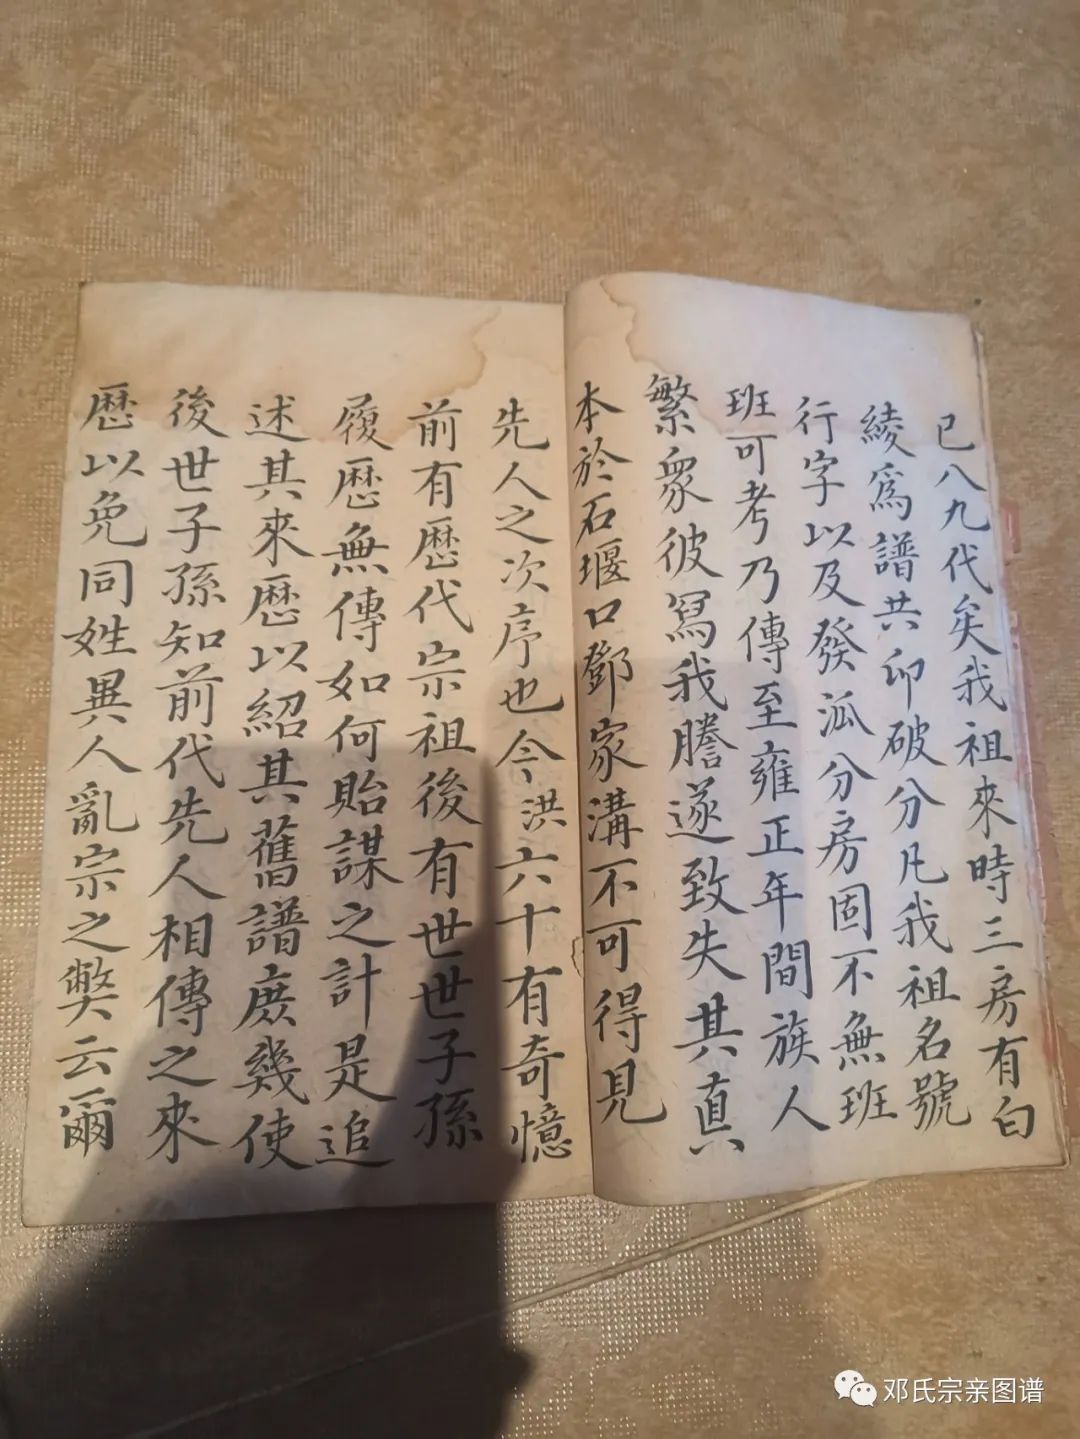 已八九代矣我祖來時三房有白
綾爲譜共卯破分凡我祖名號
行字以及發泒分房固不無班
班可考乃傳至雍正年間族人
繁衆彼冩我謄遂致失其真
本於石堰口鄧家溝不可得見
先人之次序也今洪六十有奇憶
前有歷代宗祖後有世世子孫
履歷無傳如何貽謀之計是追
述其來歷以紹其舊譜庶幾使
後世子孫知前代先人相傳之來
歷以免同姓異人亂宗之弊云爾
邓氏宗亲图谱